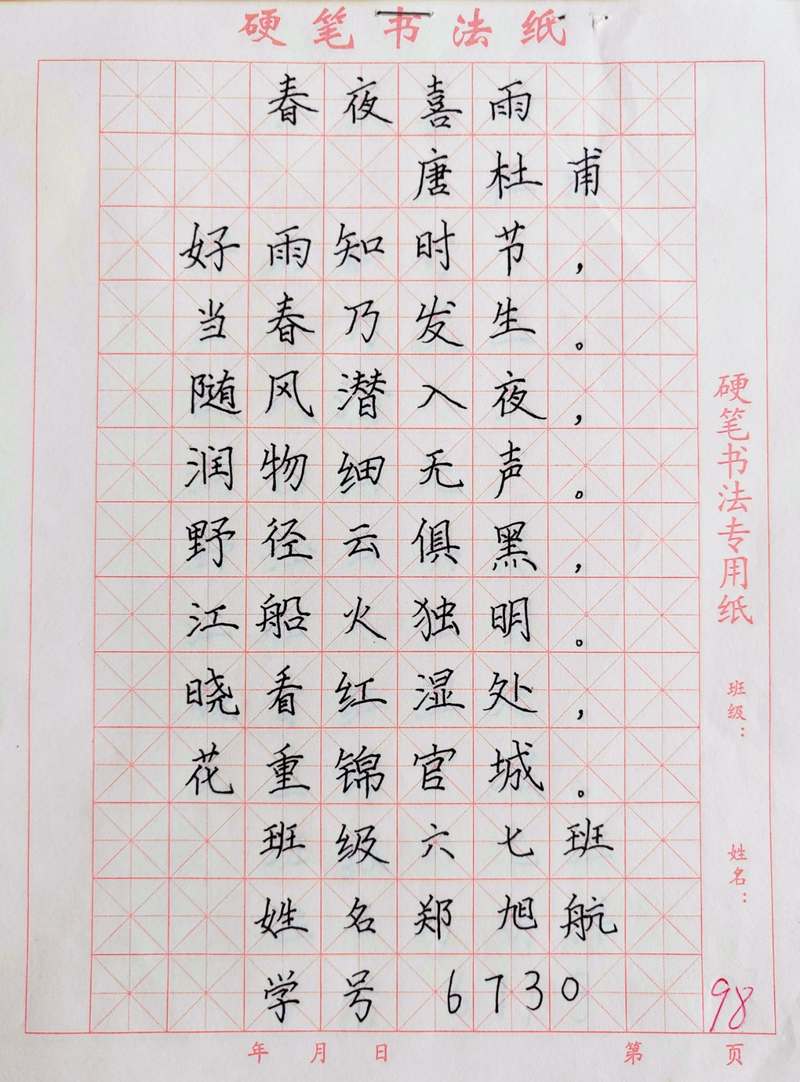 硬笔书法纸
春夜喜雨
唐杜甫
好雨知时节，
当春乃发生。
随风潜入夜，
润物细无声。
野径云俱黑，
江船火独明。
晓看红湿处，
花重锦官城。
班级六七班
姓名郑旭航
学号6730
硬笔书法专用纸
班级：
姓名：
98
年 月 日
第 页